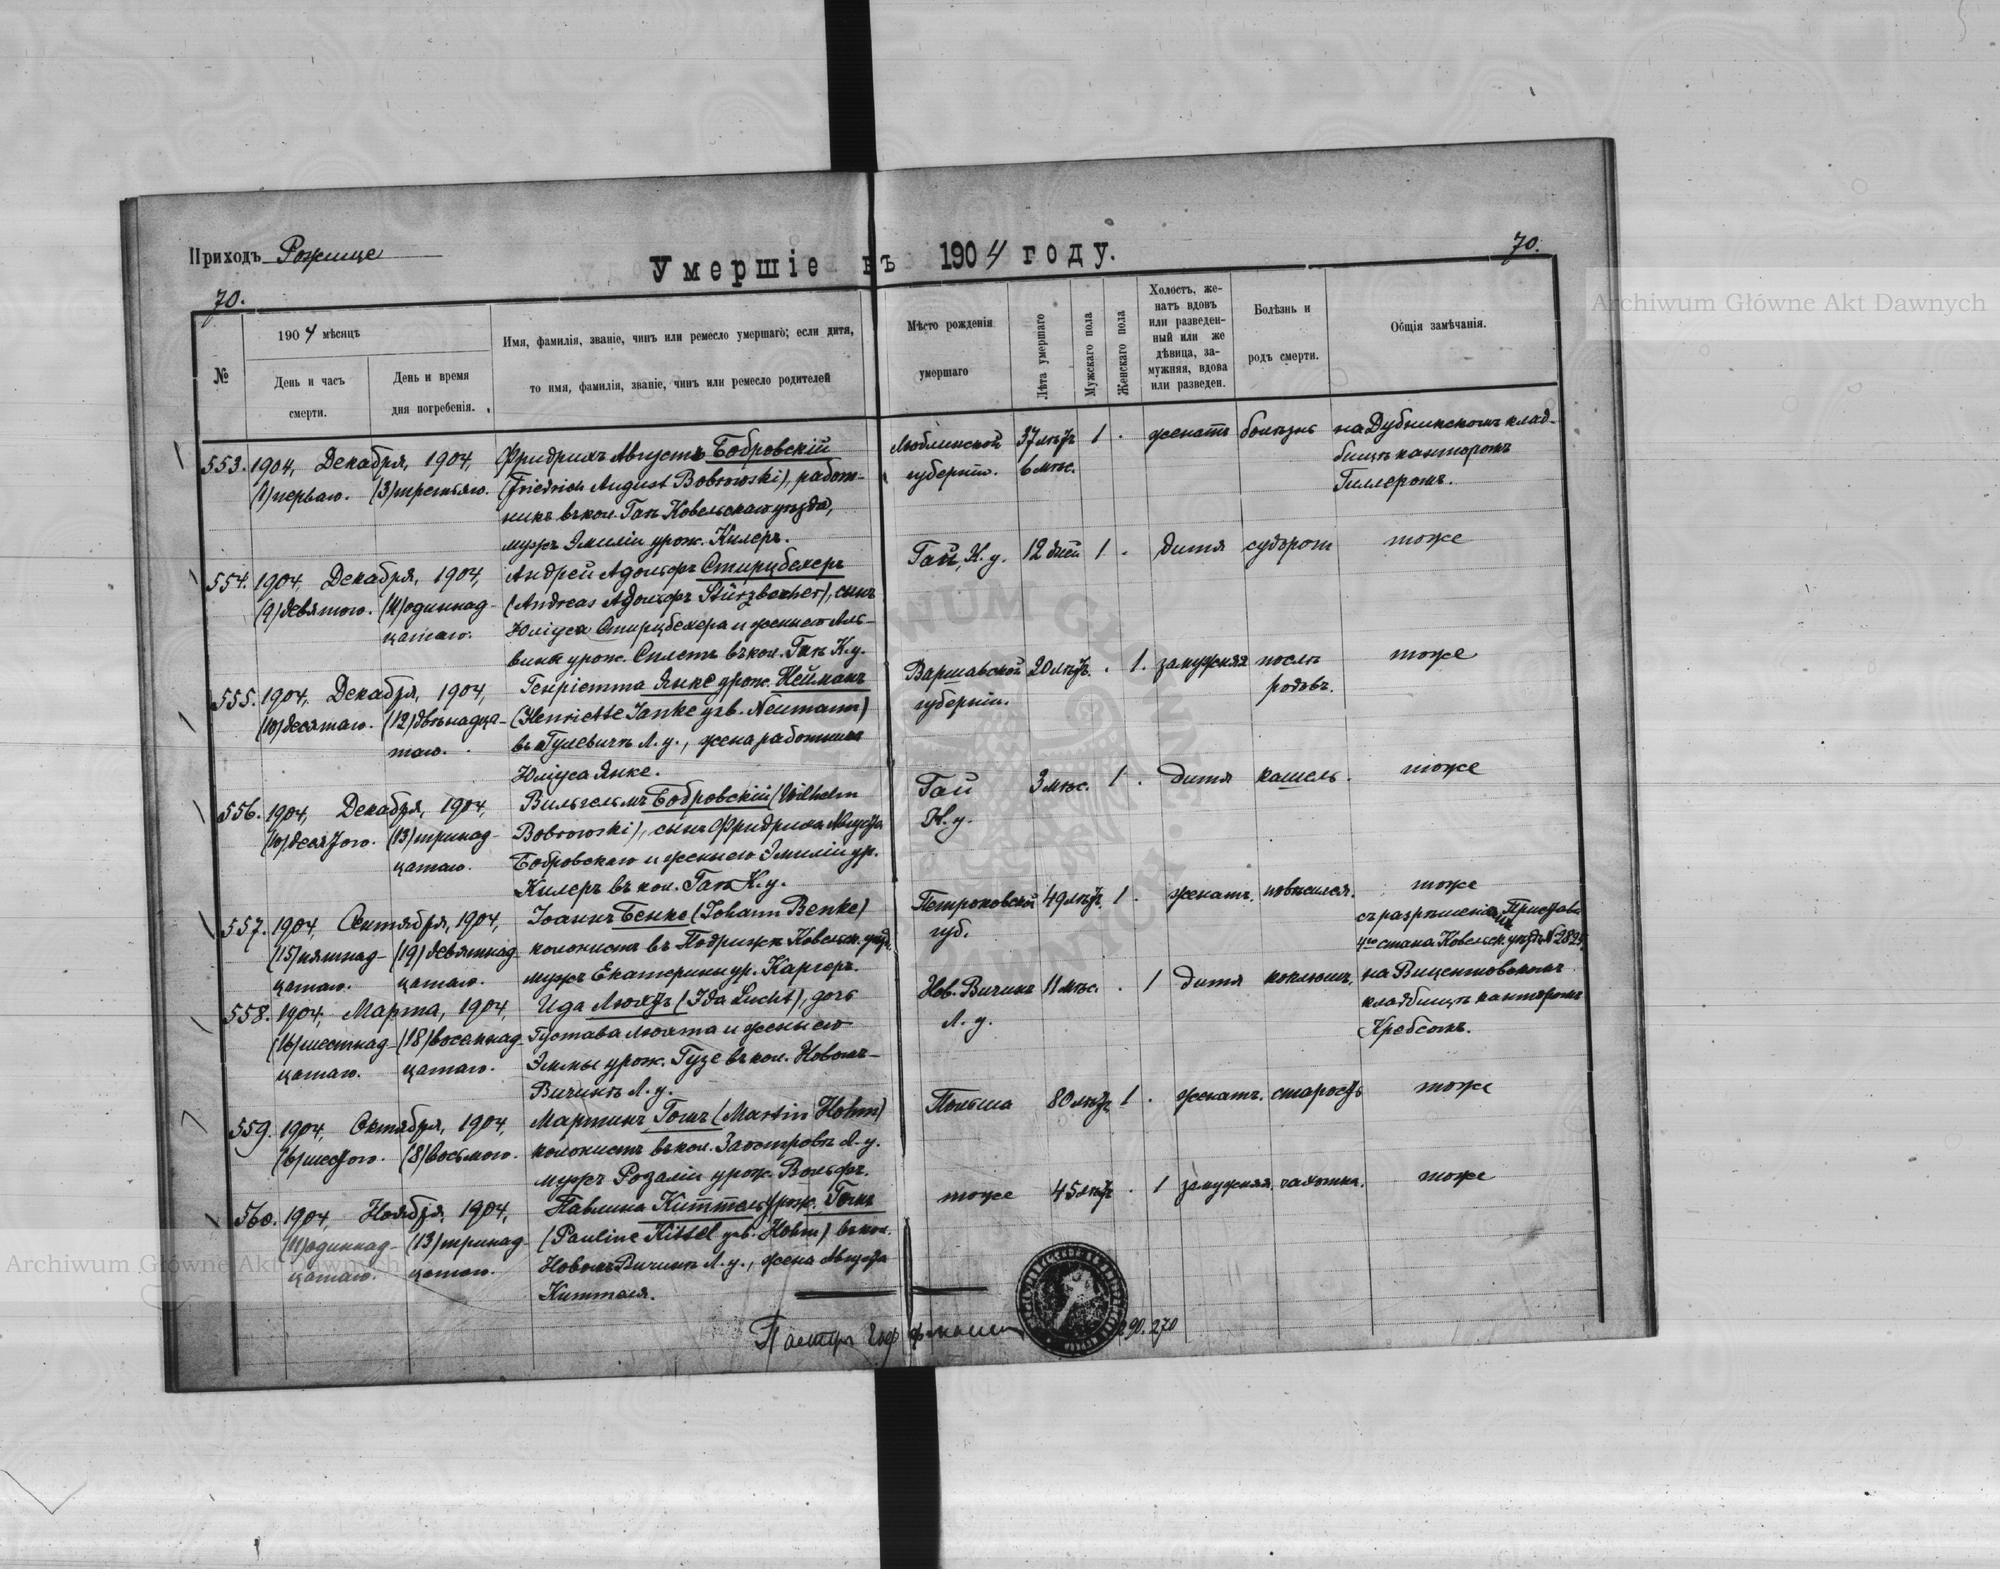 Приходъ Рожище
Умершіе въ 1904 году.
70.
70.
№
1904 мѣсяцъ
День и часъ смерти.
День и время дня погребенія.
Имя, фамилія, званіе, чинъ или ремесло умершаго; если дитя,
то имя, фамилія, званіе, чинъ или ремесло родителей
Мѣсто рожденія умершаго
Лѣта умершаго
Мужскаго пола
Женскаго пола
Холостъ, же-
натъ вдовъ
или разведен-
ный или же
дѣвица, за-
мужняя, вдова
или разведен.
Болѣзнь и
родъ смерти.
Общія замѣчанія.
553. 1904, Декабря, 1904,
(1) перваго. (3) третьяго.
Фридрихъ Августъ Бобровскій
(Friedrich August Bobrowski), работ-
никъ въ кол. Гаѣ Ковельскаго уѣзда,
мужъ Эмиліи урож. Килеръ.
Люблинской
губерніи.
37 лѣтъ
6 мѣс.
1 .
женатъ
болѣзнь
на Дубникскомъ клад-
бищѣ канторомъ
Гиллеромъ.
554. 1904, Декабря, 1904,
(9) девятого. (11) одиннад-
цатаго.
Андрей Адольфъ Стирцбехеръ
(Andreas Адольфъ Stürzbecher), сынъ
Юліуса Стирцбехера и жены его Аль-
вины урож. Сплетъ въ кол. Гаѣ К. у.
Гай, К. у.
12 дней
1 .
дитя
судорог
тоже
555. 1904, Декабря, 1904,
(10) десятаго. (12) двѣнадца-
таго.
Генріетта Янке урож. Нейманъ
(Henriette Janke geb. Neumann)
въ Гулевичѣ Л. у., жена работника
Юліуса Янке.
Варшавской
губерніи.
20 лѣтъ.
. 1.
замужняя
послѣ
родовъ.
тоже
556. 1904, Декабря, 1904,
(10) десятого. (13) тринад-
цатаго.
Вильгельмъ Бобровскій (Wilhelm
Bobrowski), сынъ Фридриха Августа
Бобровскаго и жены его Эмиліи ур.
Килеръ въ кол. Гаѣ К. у.
Гай
К. у.
3 мѣс.
1 .
дитя
кашель.
тоже
557. 1904, Сентября, 1904,
(15) пятнад- (19) девятнад-
цатаго. цатаго.
Іоаннъ Бенке (Johann Benke)
колонистъ въ Подрижѣ Ковельск. уѣзд.
мужъ Екатерины ур. Каргеръ.
Петроковской
губ.
49 лѣтъ.
1 .
женатъ.
повѣсился.
тоже
съ разрѣшенія Пристава
4го стана Ковельск. уѣзда №2825
558. 1904, Марта, 1904,
(16) шестнад- (18) восемнад-
цатаго. цатаго.
Ида Люхтъ (Ida Lucht), дочь
Густава Люхта и жены его
Эммы урож. Гузе въ кол. Новомъ-
Вичинѣ Л. у.
Нов. Вичинѣ
Л. у.
11 мѣс.
. 1
дитя
коклюшъ.
на Вицентовскомъ
кладбищѣ канторомъ
Кребсомъ.
559. 1904, Октября, 1904,
(6) шестого. (8) восьмого.
Мартинъ Гомъ (Martin Hohm)
колонистъ въ кол. Заостровѣ Л. у.
мужъ Розаліи урож. Вольфъ.
Польша
80 лѣтъ
1 .
женатъ.
старость
тоже
560. 1904, Ноября, 1904,
(11) одиннад- (13) тринад-
цатаго. цатаго.
Павлина Киттель урож. Гомъ
(Pauline Kittel geb. Hohm) въ кол.
Новомъ Вичинѣ Л. у., жена Августа
Киттеля.
тоже
45 лѣтъ
. 1
замужняя.
чахотка.
тоже
Пасторъ
290. 270
Archiwum Główne Akt Dawnych
Archiwum Główne Akt Dawnych